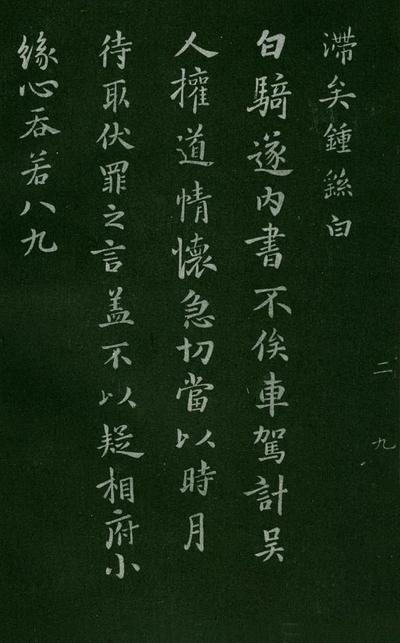 滯矣鍾繇白
白騎遂內書不俟車駕計吳
人權道情懷急切當以時月
待取伏罪之言蓋不以疑相府小
緣心吞若八九
二九